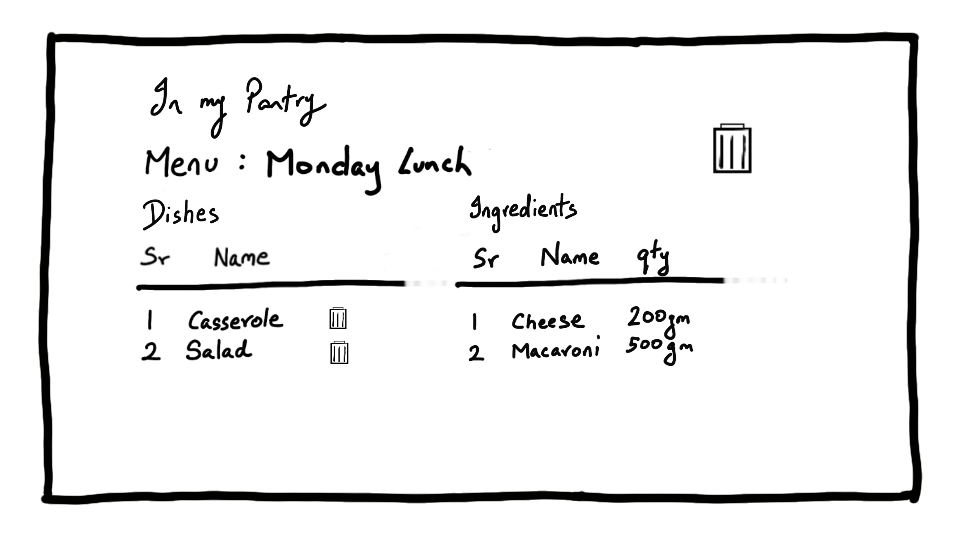 In my Pantry
Menu : Monday Lunch
Dishes
Sr Name
1 Casserole
2 Salad
Ingredients
Sr Name qty
1 Cheese 200gm
2 Macaroni 500gm